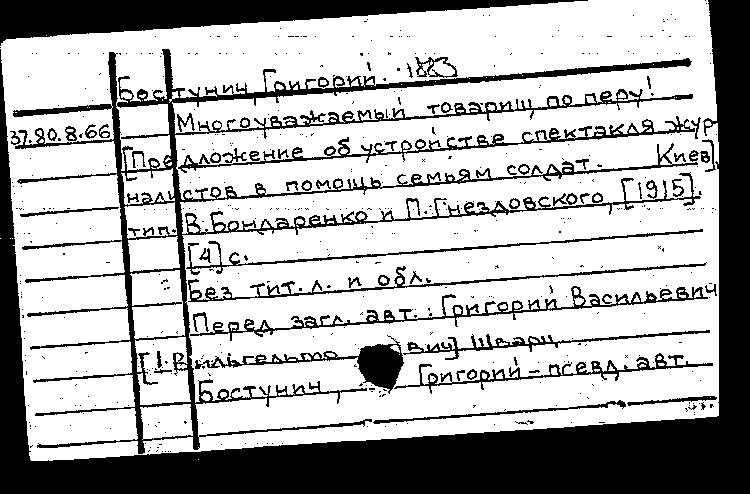 Бостунин, Григорий. 1883
37.80.8.66 Многоуважаемый товарищ по перу!
[Предложение об устройстве спектакля жур-
налистов в помощь семьям солдат. Киев],
тип. В. Бондаренко и П. Гнездовского, [1915].
[4] с.
Без тит. л. и обл.
Перед загл. авт.: Григорий Васильевич
[!Вильгельмо вич] Шварц
Бостунин, Григорий – псевд. авт.